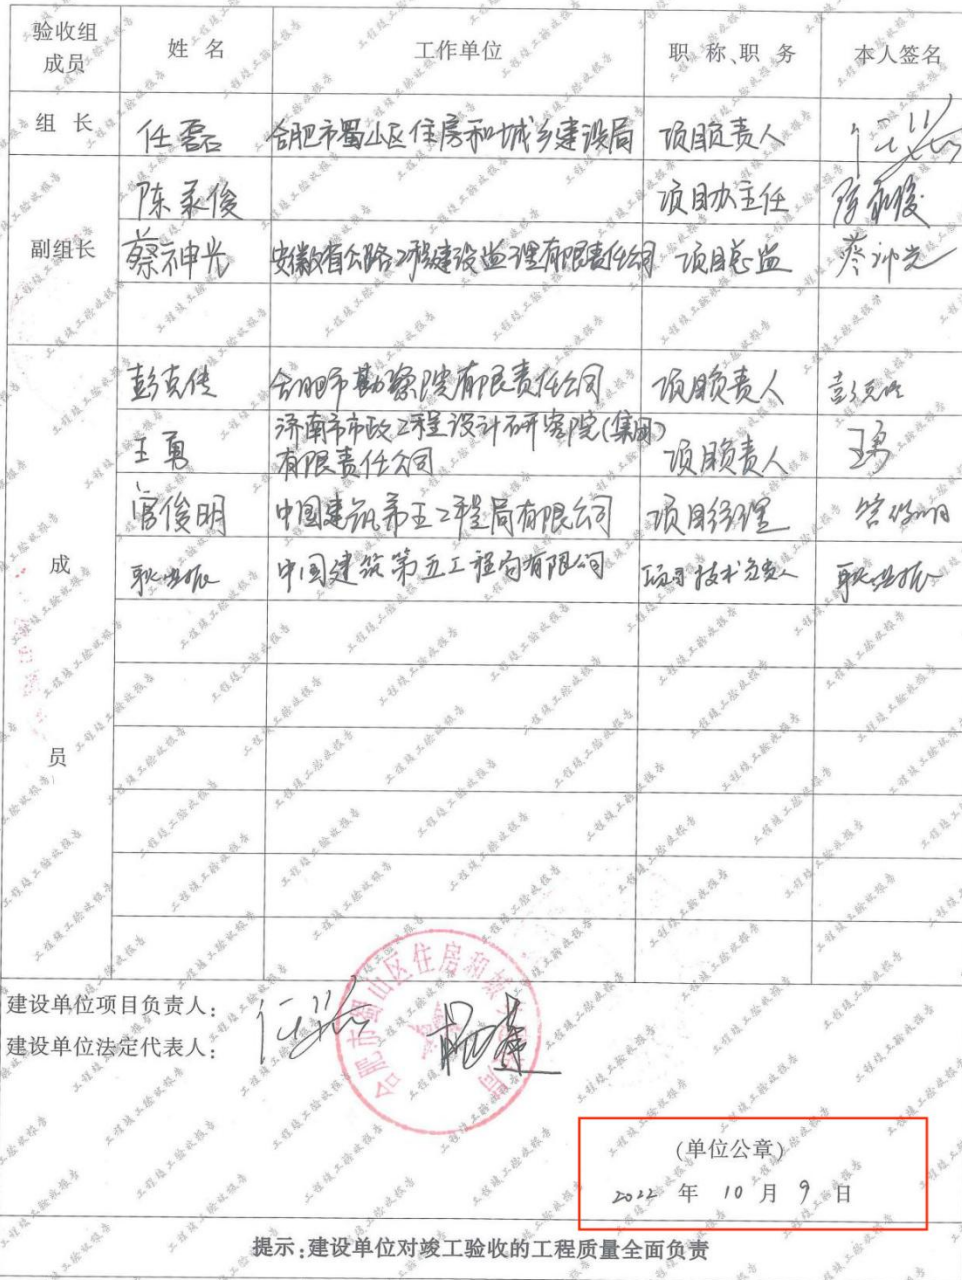 验收组成员 姓 名 工作单位 职 称、职 务 本人签名
组 长 任磊 合肥市蜀山区住房和城乡建设局 项目负责人
副组长
陈录俊 项目办主任
蔡神光 安徽省公路工程建设监理有限责任公司 项目总监 蔡神光
成员
彭克传 合肥市勘察院有限责任公司 项目负责人
王勇 济南市市政工程设计研究院(集团)
有限责任公司 项目负责人 王勇
管俊明 中国建筑第五工程局有限公司 项目经理 管俊明
中国建筑第五工程局有限公司 项目技术负责人
合肥市蜀山区住房和城乡建设局
建设单位项目负责人:
建设单位法定代表人:
(单位公章)
2022 年 10 月 9 日
提示:建设单位对竣工验收的工程质量全面负责
工程竣工验收报告